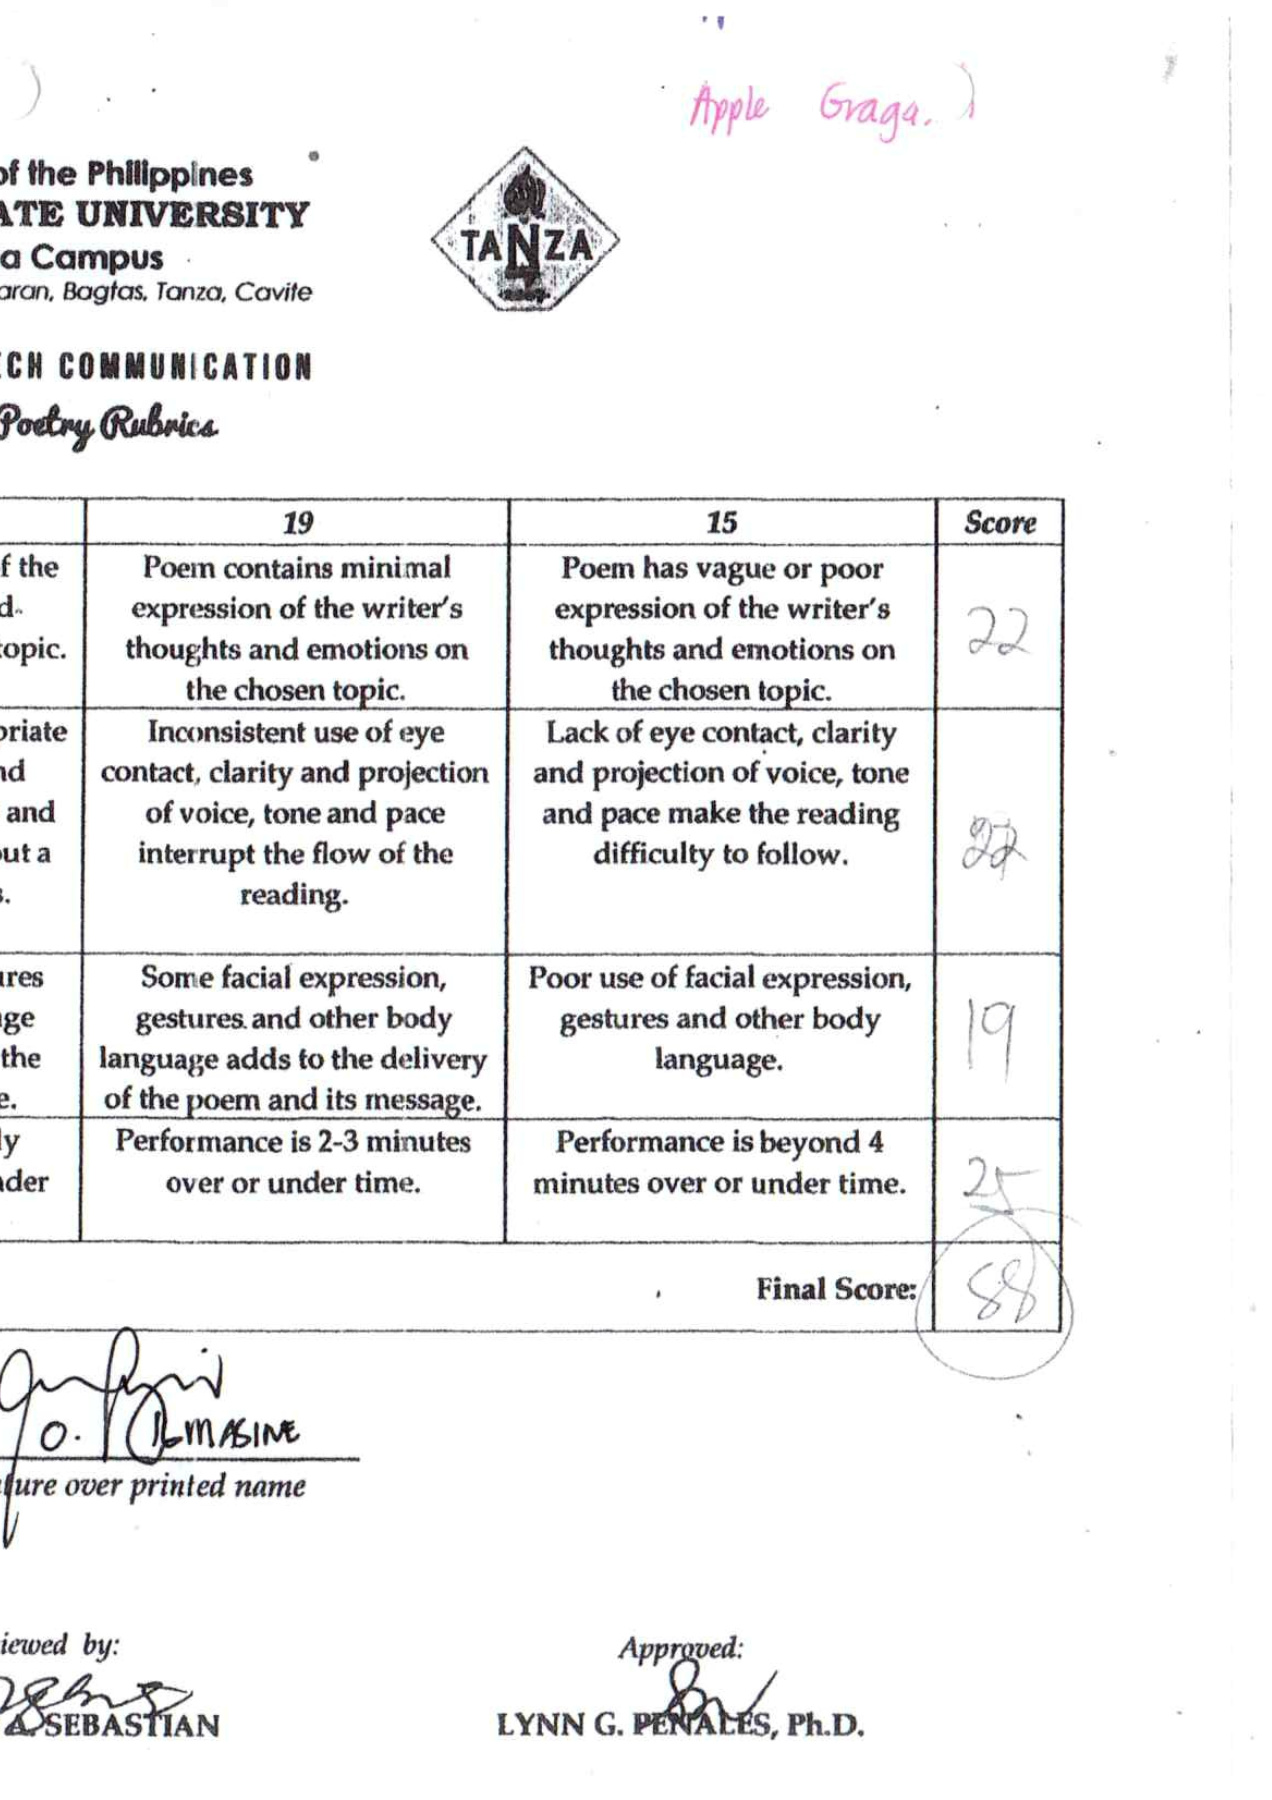 Apple Graga.
of the Philippines
ATE UNIVERSITY
a Campus
aran, Bagtas, Tanza, Cavite
TANZA
ECH COMMUNICATION
Poetry Rubrics
19 15 Score
f the
d.
topic.
Poem contains minimal
expression of the writer's
thoughts and emotions on
the chosen topic.
Poem has vague or poor
expression of the writer's
thoughts and emotions on
the chosen topic.
22
priate
nd
and
out a
s.
Inconsistent use of eye
contact, clarity and projection
of voice, tone and pace
interrupt the flow of the
reading.
Lack of eye contact, clarity
and projection of voice, tone
and pace make the reading
difficulty to follow.
22
ures
age
the
e.
Some facial expression,
gestures and other body
language adds to the delivery
of the poem and its message.
Poor use of facial expression,
gestures and other body
language.
19
ly
nder
Performance is 2-3 minutes
over or under time.
Performance is beyond 4
minutes over or under time.
25
Final Score: 88
O.
ture over printed name
iewed by:
A. SEBASTIAN
Approved:
LYNN G. PENALES, Ph.D.